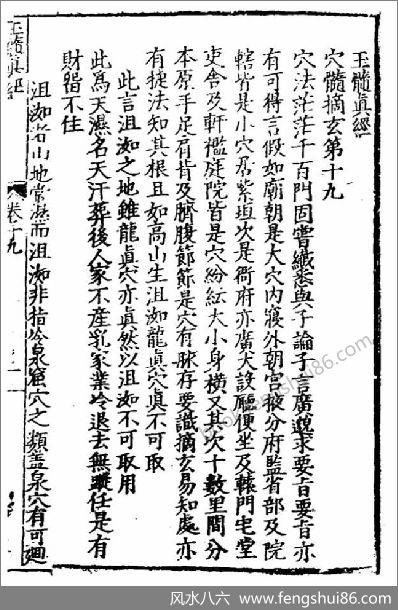 玉髓真經
穴髓摘玄第十九
穴法茫茫千百門固嘗纖悉與子論子言廣邈求要旨要旨亦
有可得言假如廟朝是大穴內寢外朝宮掖分府監省部及院
轄皆是小穴居紫垣次是衙府亦廣大設廳便坐及轅門宅堂
吏舍及軒檻庭院皆是穴紛紜大小身橫又其次十數里間分
本原手足肩背及臍腹節節是穴有脉存要識摘玄易知處亦
有捷法知其根且如高山生沮洳龍真穴真不可取
此言沮洳之地雖龍真穴亦真然以沮洳不可取用
此為天濕名天汗葬後人家不產乳家業冷退去無職任是有
財留不住
沮洳者山地常濕而沮洳非指冷泉窟穴之類蓋泉穴有可廻
玉髓真經
卷十九
一
www.fengshui86.com
风水八六:www.fengshui86.com